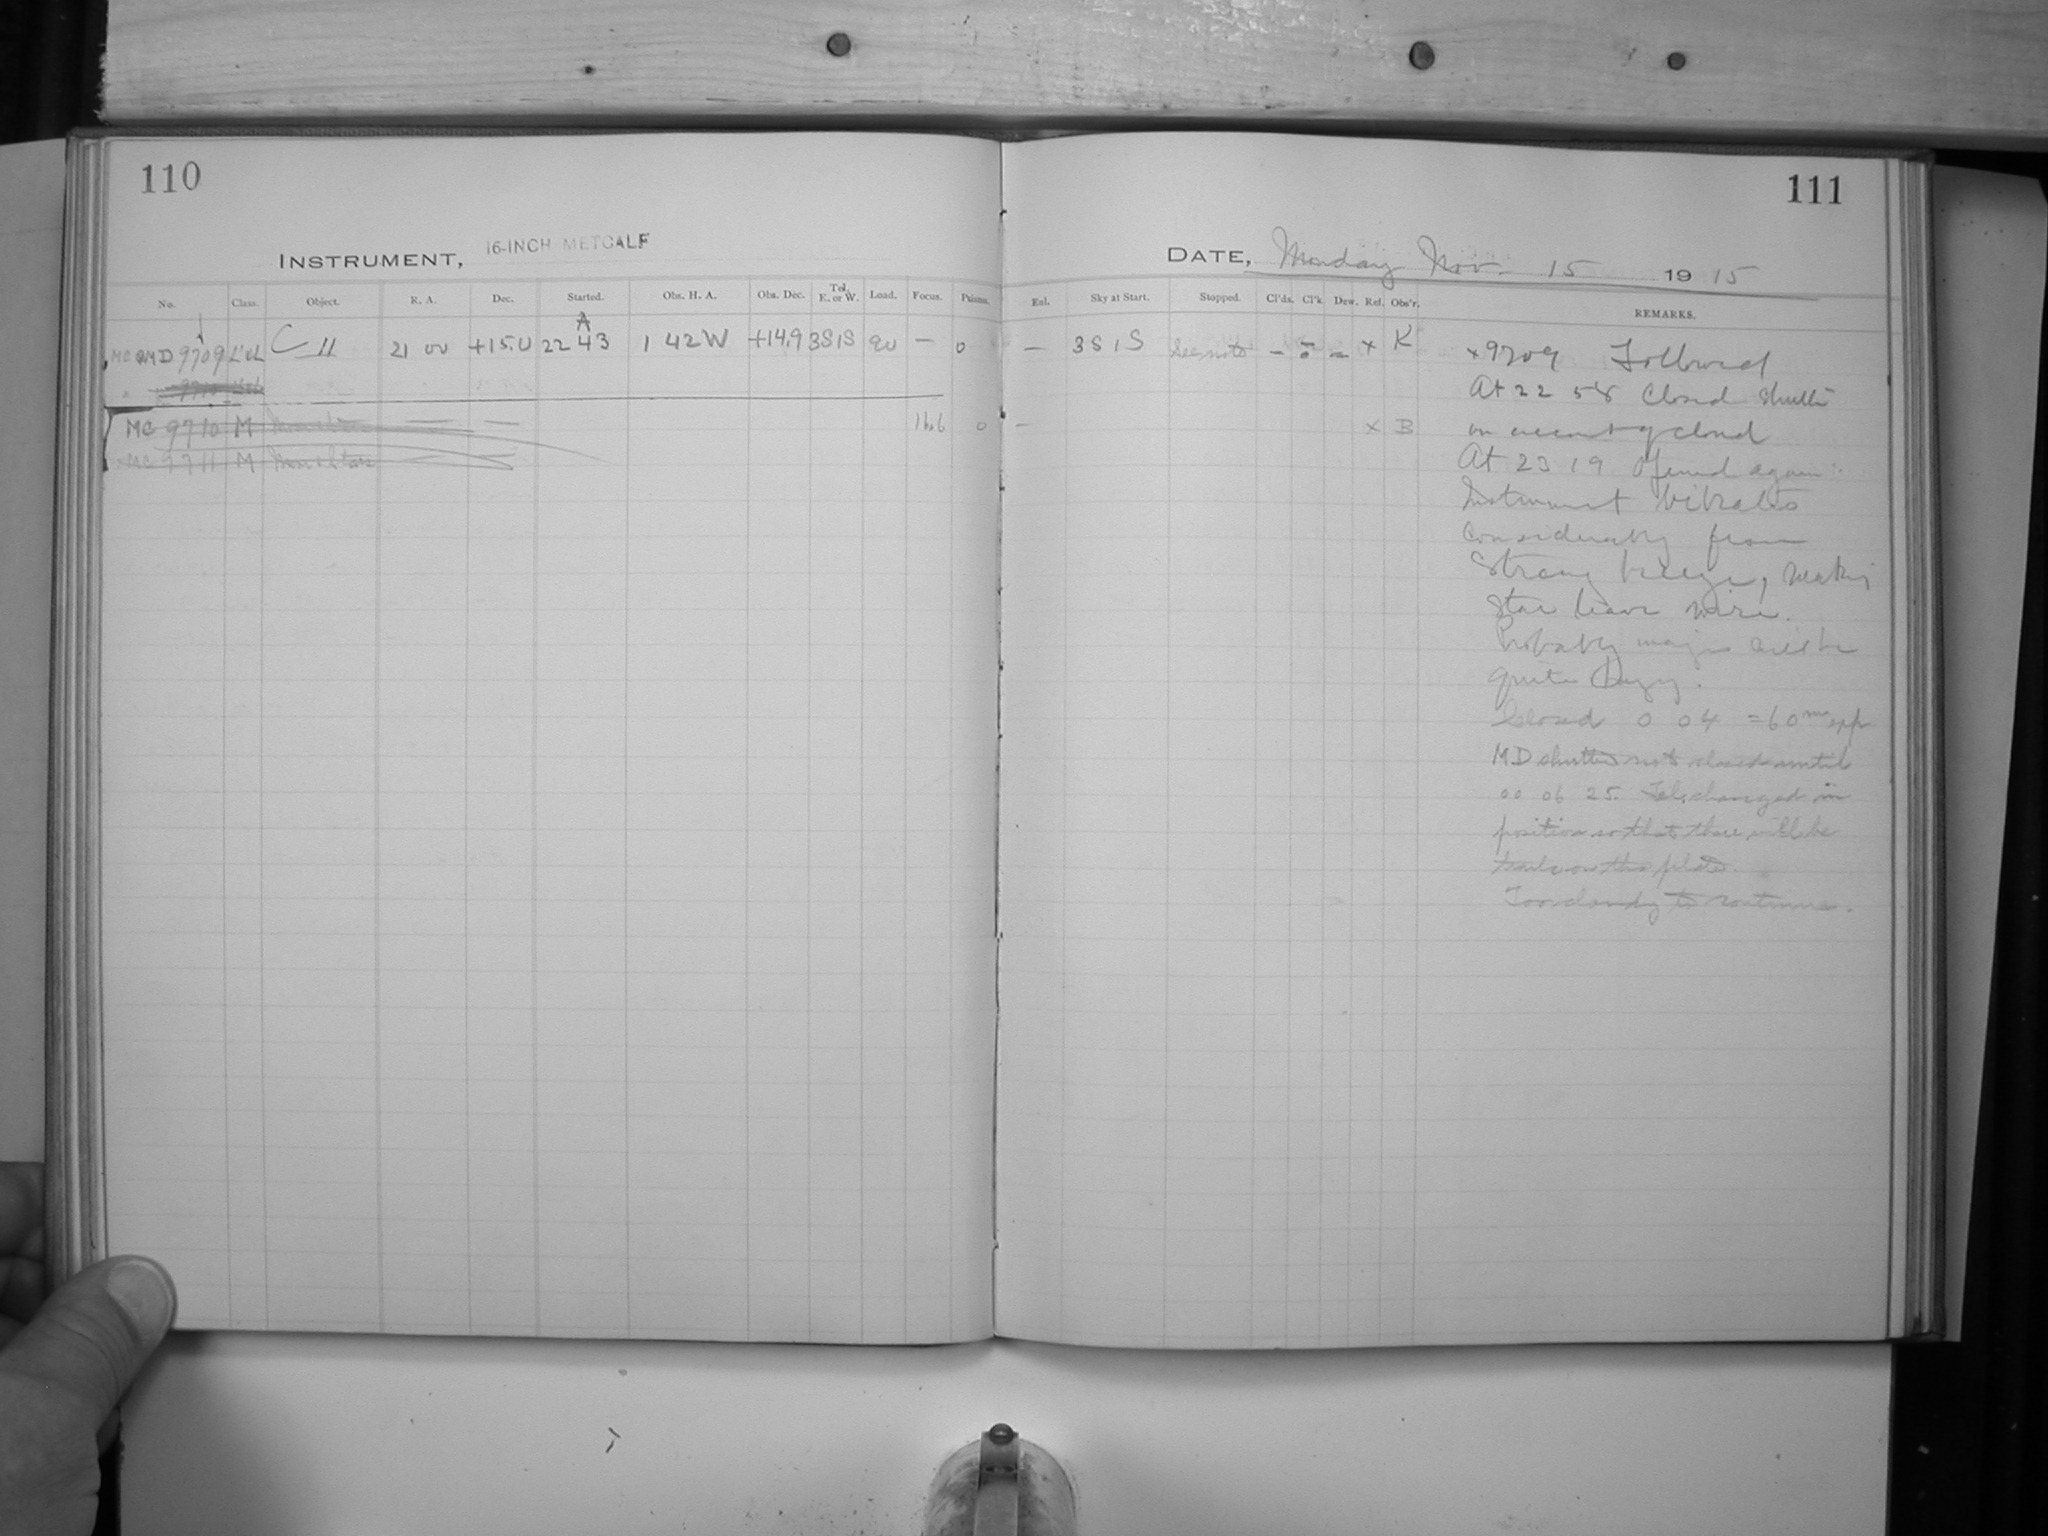 110
111
INSTRUMENT, 16-INCH METCALF
DATE, Monday Nov. 15 1915
No. Class. Object. R. A. Dec. Started. Obs. H. A. Obs. Dec. Tel. E. or W. Load. Focus. Prisms. Enl. Sky at Start. Stopped. Cl'ds. Cl'k. Dew. Ref. Obs'r. REMARKS.
A
MC MD 9709 C 11 21 00 +15.0 22 43 1 42 W +14.9 3S1S 20 — 0 — 3S 1S See note — — x K
MC 9710 M 16.6 0 — x B
MC 9711 M Moon & Stars
x9709 Followed
At 22 58 Closed Shutter
on account of cloud
At 23 19 Opened again:
Instrument vibrates
considerably from
strong breeze, making
star leave wire.
Probably images will be
quite
Closed 0 04 = 60 m exp
MD shutter not closed until
00 06 25. Tel. changed in
position so that there will be
trails on this plate.
Too cloudy to continue.